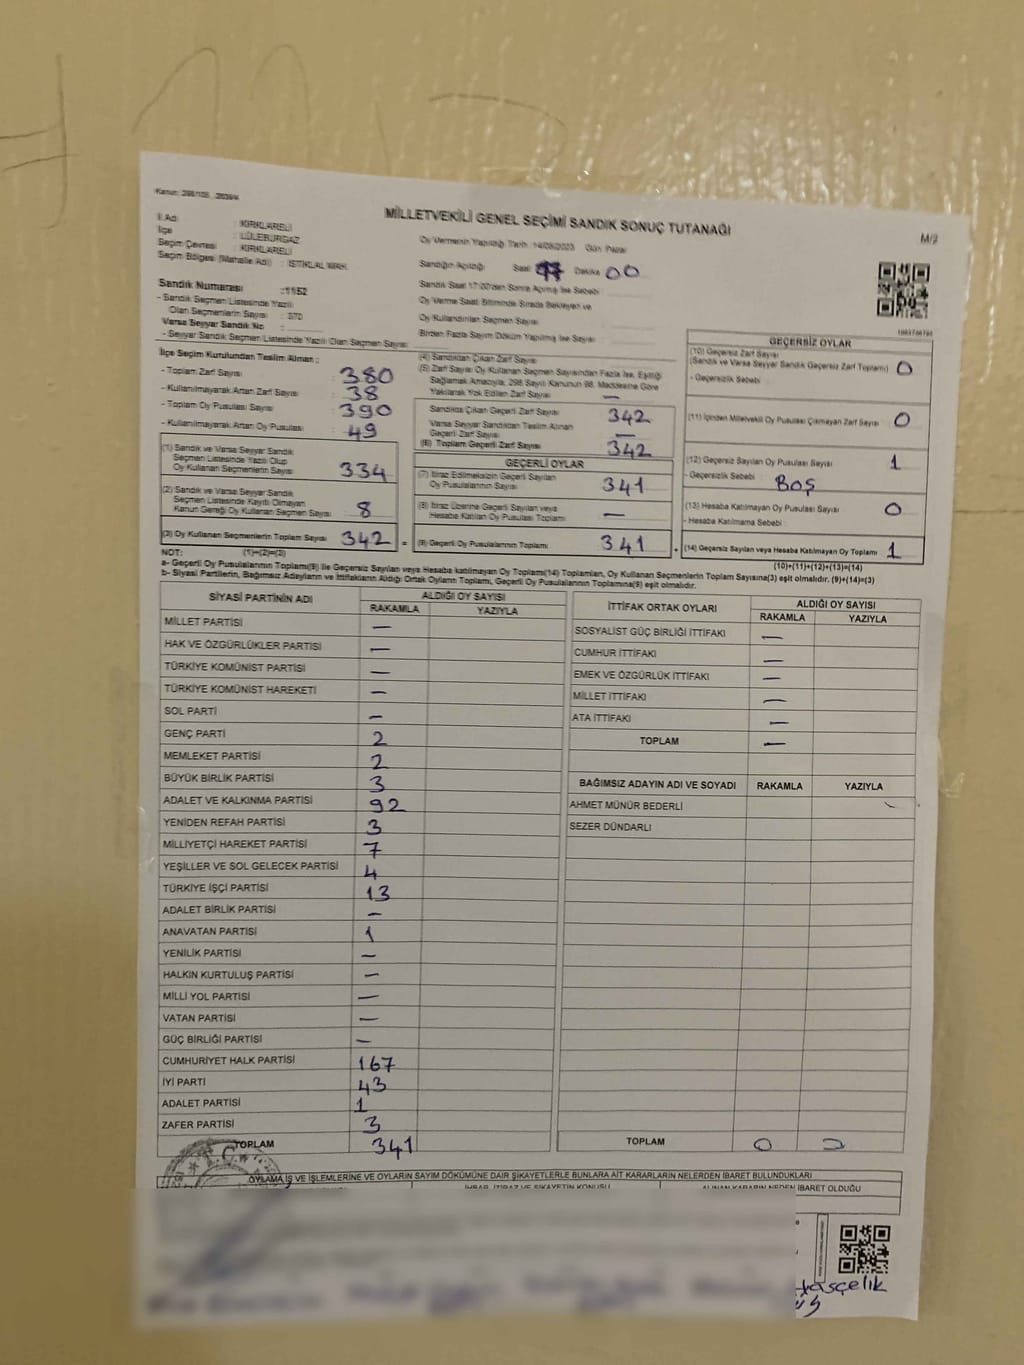 MİLLETVEKİLİ GENEL SEÇİMİ SANDIK SONUÇ TUTANAĞI
M/9
İl Adı : KIRKLARELİ
İlçe : LÜLEBURGAZ
Seçim Çevresi : KIRKLARELİ
Seçim Bölgesi (Mahalle Adı) : İSTİKLAL MAH.
Oy Vermenin Yapıldığı Tarih : 14/05/2023 Gün Pazar
Sandığın Açıldığı Saat 17 Dakika 00
Sandık Saat 17:00'den Sonra Açılmış İse Sebebi
Oy Verme Saati Bitiminde Sırada Bekleyen ve
Oy Kullandırılan Seçmen Sayısı
Birden Fazla Sayım Döküm Yapılmış İse Sayısı
Sandık Numarası : 1152
- Sandık Seçmen Listesinde Yazılı
Olan Seçmenlerin Sayısı : 370
Varsa Seyyar Sandık No :
- Seyyar Sandık Seçmen Listesinde Yazılı Olan Seçmen Sayısı
İlçe Seçim Kurulundan Teslim Alınan ;
- Toplam Zarf Sayısı : 380
- Kullanılmayarak Artan Zarf Sayısı : 38
- Toplam Oy Pusulası Sayısı : 390
- Kullanılmayarak Artan Oy Pusulası : 49
(1) Sandık ve Varsa Seyyar Sandık
Seçmen Listesinde Yazılı Olup
Oy Kullanan Seçmenlerin Sayısı 334
(2) Sandık ve Varsa Seyyar Sandık
Seçmen Listesinde Kayıtlı Olmayan
Kanun Gereği Oy Kullanan Seçmen Sayısı 8
(3) Oy Kullanan Seçmenlerin Toplam Sayısı 342
(1)+(2)=(3)
(4) Sandıktan Çıkan Zarf Sayısı
(5) Zarf Sayısı Oy Kullanan Seçmen Sayısından Fazla İse, Eşitliği
Sağlamak Amacıyla, 298 Sayılı Kanunun 98. Maddesine Göre
Yakılarak Yok Edilen Zarf Sayısı —
Sandıkta Çıkan Geçerli Zarf Sayısı 342
Varsa Seyyar Sandıktan Teslim Alınan
Geçerli Zarf Sayısı —
(6) Toplam Geçerli Zarf Sayısı 342
GEÇERLİ OYLAR
(7) İtiraz Edilmeksizin Geçerli Sayılan
Oy Pusulalarının Sayısı 341
(8) İtiraz Üzerine Geçerli Sayılan veya
Hesaba Katılan Oy Pusulası Toplamı —
= (9) Geçerli Oy Pusulalarının Toplamı 341
GEÇERSİZ OYLAR
(10) Geçersiz Zarf Sayısı
(Sandık ve Varsa Seyyar Sandık Geçersiz Zarf Toplamı) 0
- Geçersizlik Sebebi
(11) İçinden Milletvekili Oy Pusulası Çıkmayan Zarf Sayısı 0
(12) Geçersiz Sayılan Oy Pusulası Sayısı 1
- Geçersizlik Sebebi : BOŞ
(13) Hesaba Katılmayan Oy Pusulası Sayısı 0
- Hesaba Katılmama Sebebi :
+ (14) Geçersiz Sayılan veya Hesaba Katılmayan Oy Toplamı 1
(10)+(11)+(12)+(13)=(14)
NOT:
a- Geçerli Oy Pusulalarının Toplamı(9) ile Geçersiz Sayılan veya Hesaba katılmayan Oy Toplamı(14) Toplamları, Oy Kullanan Seçmenlerin Toplam Sayısına(3) eşit olmalıdır. (9)+(14)=(3)
b- Siyasi Partilerin, Bağımsız Adayların ve İttifakların Aldığı Ortak Oyların Toplamı, Geçerli Oy Pusulalarının Toplamına(9) eşit olmalıdır.
SİYASİ PARTİNİN ADI ALDIĞI OY SAYISI
RAKAMLA YAZIYLA
MİLLET PARTİSİ —
HAK VE ÖZGÜRLÜKLER PARTİSİ —
TÜRKİYE KOMÜNİST PARTİSİ —
TÜRKİYE KOMÜNİST HAREKETİ —
SOL PARTİ —
GENÇ PARTİ 2
MEMLEKET PARTİSİ 2
BÜYÜK BİRLİK PARTİSİ 3
ADALET VE KALKINMA PARTİSİ 92
YENİDEN REFAH PARTİSİ 3
MİLLİYETÇİ HAREKET PARTİSİ 7
YEŞİLLER VE SOL GELECEK PARTİSİ 4
TÜRKİYE İŞÇİ PARTİSİ 13
ADALET BİRLİK PARTİSİ —
ANAVATAN PARTİSİ 1
YENİLİK PARTİSİ —
HALKIN KURTULUŞ PARTİSİ —
MİLLİ YOL PARTİSİ —
VATAN PARTİSİ —
GÜÇ BİRLİĞİ PARTİSİ —
CUMHURİYET HALK PARTİSİ 167
İYİ PARTİ 43
ADALET PARTİSİ 1
ZAFER PARTİSİ 3
TOPLAM 341
İTTİFAK ORTAK OYLARI ALDIĞI OY SAYISI
RAKAMLA YAZIYLA
SOSYALİST GÜÇ BİRLİĞİ İTTİFAKI —
CUMHUR İTTİFAKI —
EMEK VE ÖZGÜRLÜK İTTİFAKI —
MİLLET İTTİFAKI —
ATA İTTİFAKI —
TOPLAM —
BAĞIMSIZ ADAYIN ADI VE SOYADI RAKAMLA YAZIYLA
AHMET MÜNÜR BEDERLİ
SEZER DÜNDARLI
TOPLAM 0
T.C.
OYLAMA İŞ VE İŞLEMLERİNE VE OYLARIN SAYIM DÖKÜMÜNE DAİR ŞİKAYETLERLE BUNLARA AİT KARARLARIN NELERDEN İBARET BULUNDUKLARI
İHBAR, İTİRAZ VE ŞİKAYETİN KONUSU ALINAN KARARIN NEDEN İBARET OLDUĞU